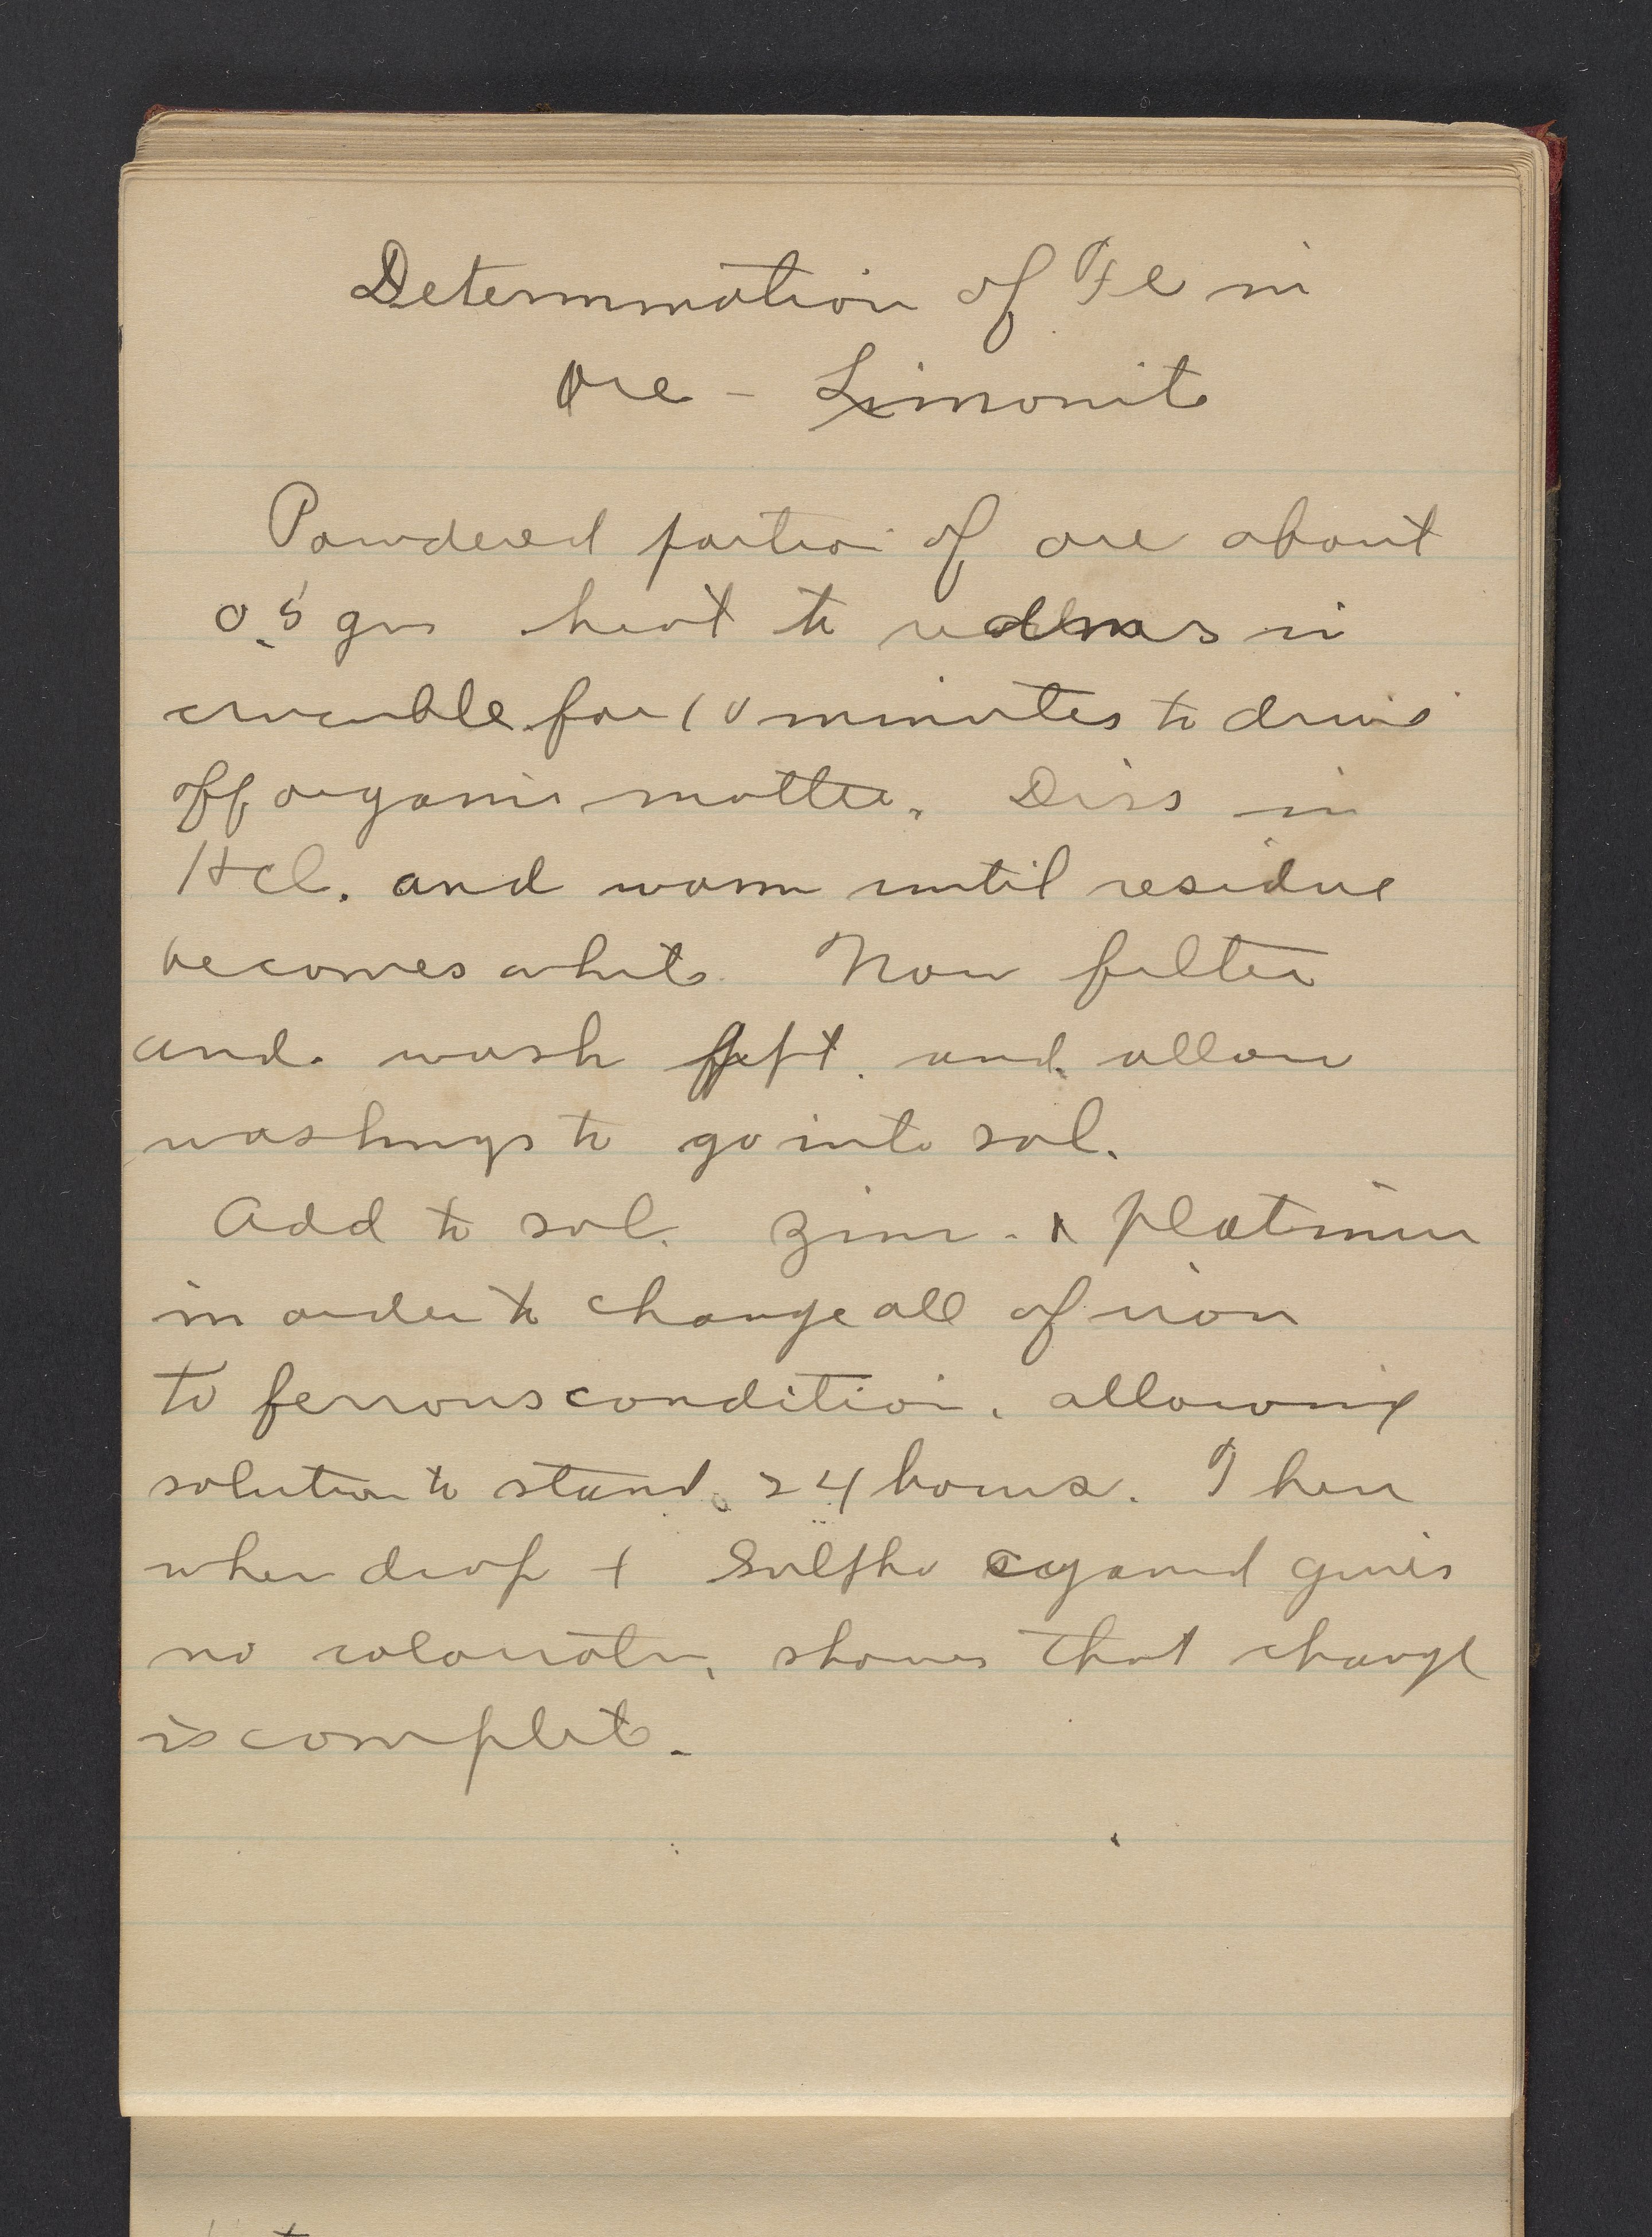 Determination of Fe in
Ore - Limonite
Powdered portion of ore about
0.5 gm heat to redness in
crucible for 10 minutes to drive
off organic matter. Diss in
HCl. and warm until residue
becomes white. Now filter
and wash ppt. and allow
washings to go into sol.
Add to sol. zinc & platinum
in order to change all of iron
to ferrous condition. allowing
solution to stand 24 hours. Then
when drop + Sulpho cyanid gives
no coloration, shows that change
is complete.